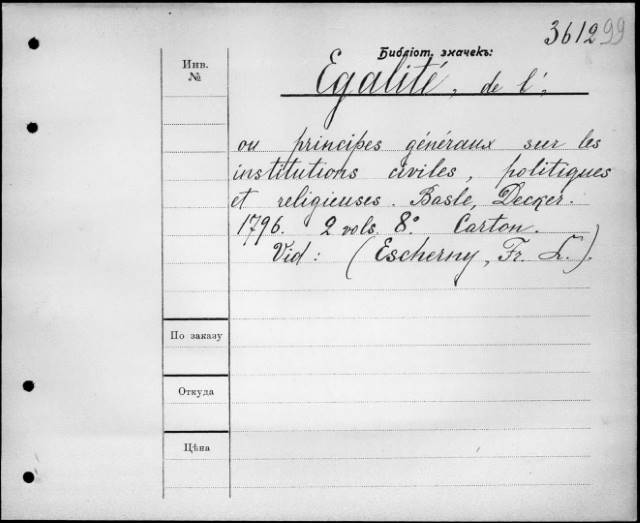 361299
Библіот. значекъ:
Инв.
№
Egalité, de l';
ou principes généraux sur les
institutions civiles, politiques
et religieuses. Basle, Decker.
1796. 2 vols. 8º Carton.
Vid: (Escherny, Fr. L.).
По заказу
Откуда
Цѣна